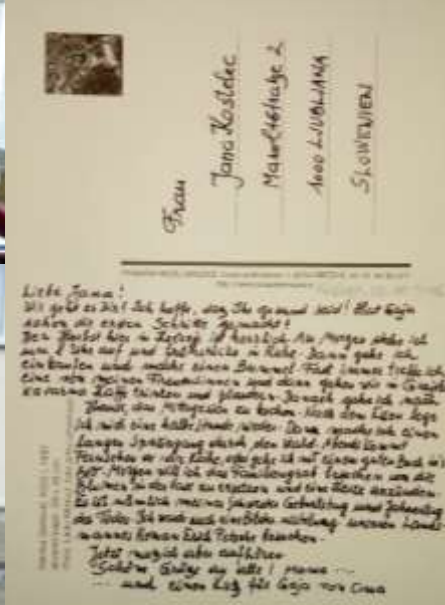 Frau
Jana Kostelec
1000 LJUBLJANA
SLOWENIEN
Liebe Jana!
Wie geht es Dir? Ich hoffe, daß Ihr gesund seid! Hat Gaja
schon die ersten Schritte gemacht?
Der Herbst hier in ist herrlich. Am Morgen stehe ich
um Uhr auf und frühstücke in Ruhe. Dann gehe ich
einkaufen und mache einen Bummel. Fast immer treffe ich
eine von meinen Freundinnen und dann gehen wir in
Kaffe trinken und plaudern. Danach gehe ich nach
Hause, das Mittagessen zu kochen. Nach dem Essen lege
ich mich eine halbe Stunde nieder. Dann mache ich einen
langen Spaziergang durch den Wald. Abends kommt
Fernsehen an die Reihe, oder gehe ich mit einem guten Buch ins
Bett. Morgen will ich das Familiengrab besuchen um die
Blumen in der Vase zu ersetzen und eine Kerze anzünden.
Es ist nämlich meiner Geburtstag und Jahrestag
des Todes. Ich werde auch eine unseren Lands-
mannes Roman Erich Petsche besuchen.
Jetzt muß ich aber aufhören.
Schöne Grüße an alle! Mama ...
... und einen für Gaja von Oma